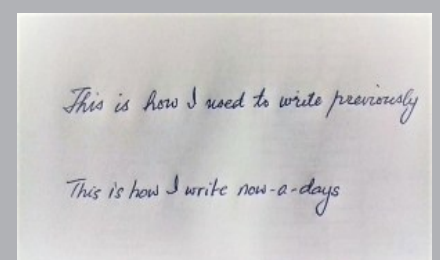 This is how I used to write previously
This is how I write now-a-days